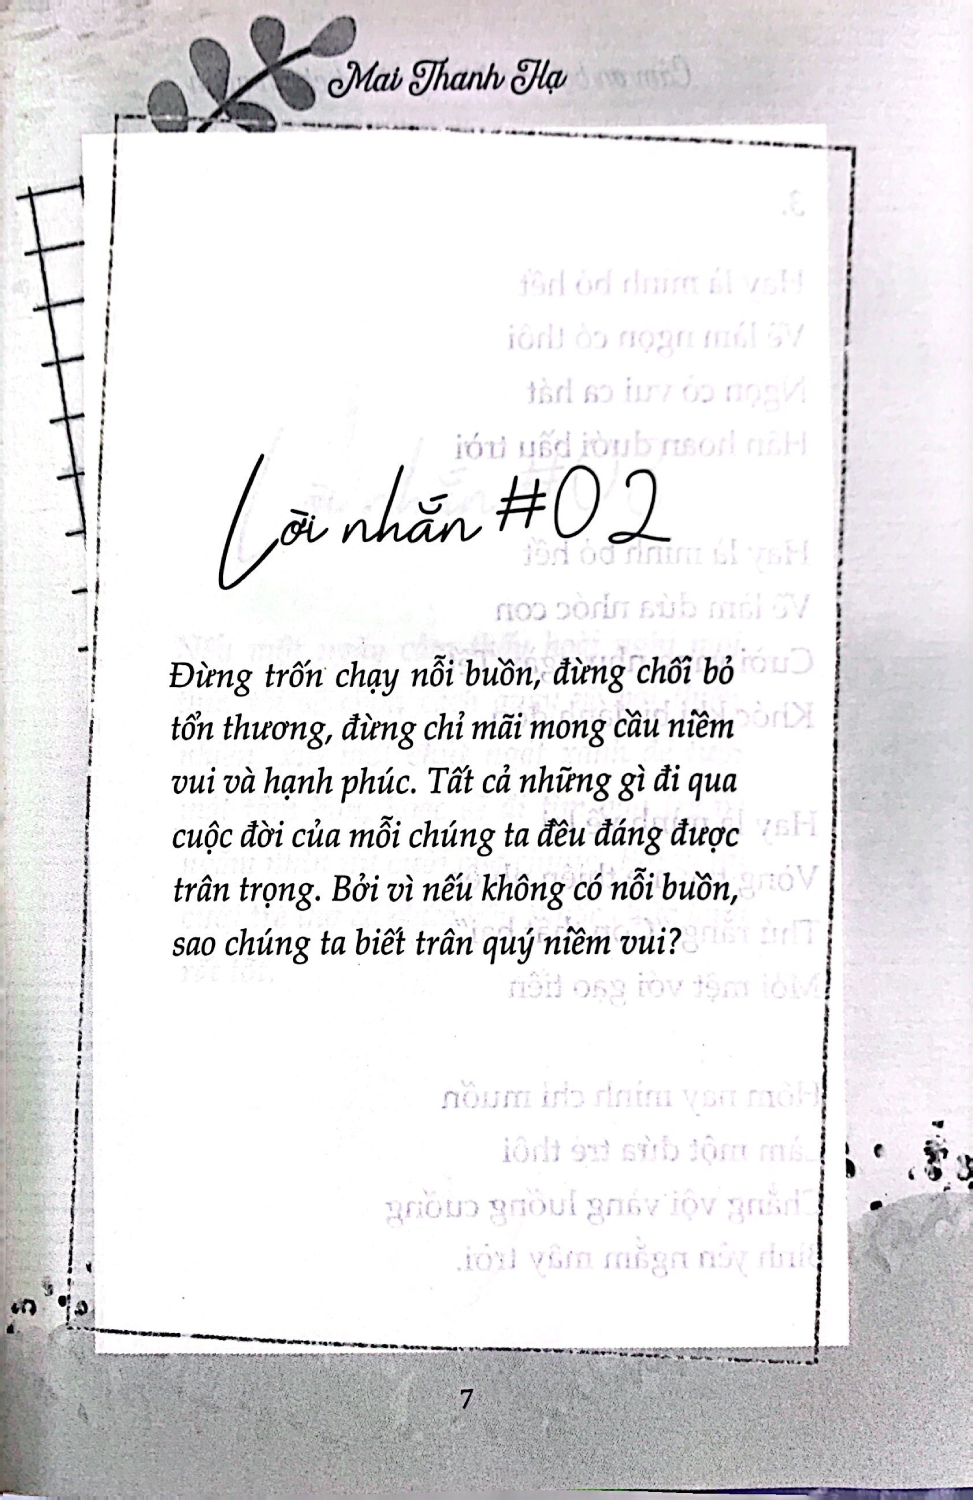 Mai Thanh Hạ
Lời nhắn #02
Đừng trốn chạy nỗi buồn, đừng chối bỏ
tổn thương, đừng chỉ mãi mong cầu niềm
vui và hạnh phúc. Tất cả những gì đi qua
cuộc đời của mỗi chúng ta đều đáng được
trân trọng. Bởi vì nếu không có nỗi buồn,
sao chúng ta biết trân quý niềm vui?
7